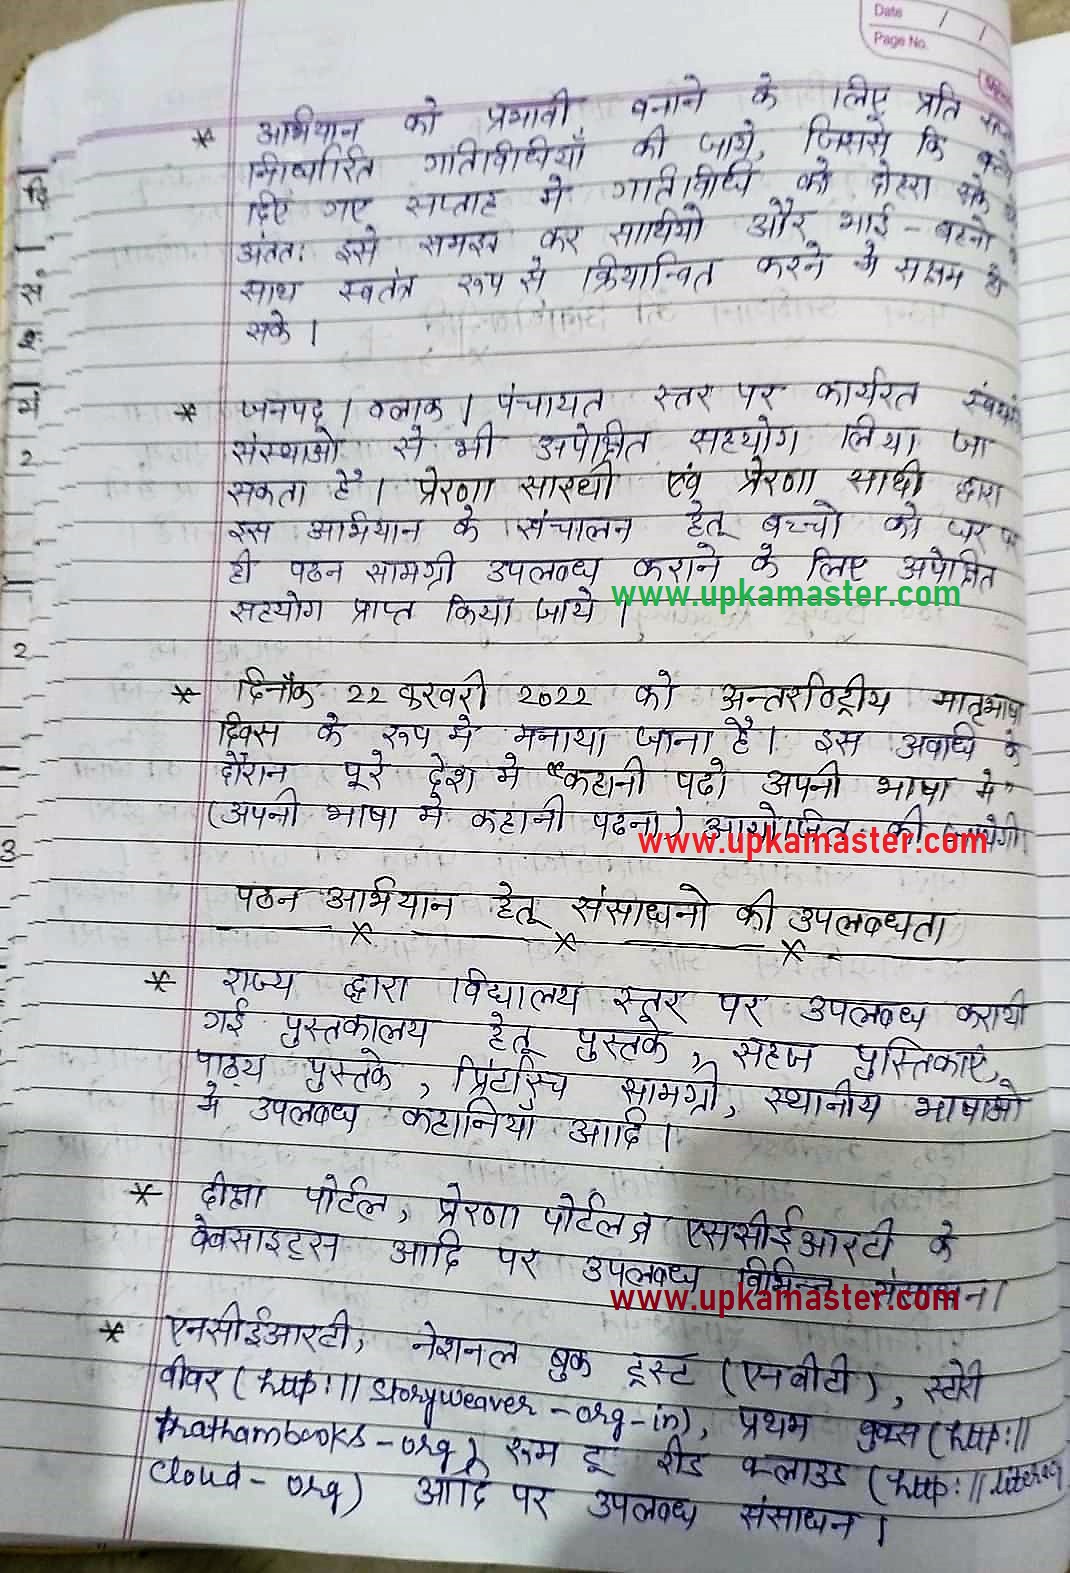 Date / /
Page No.
* अभियान को प्रभावी बनाने के लिए प्रति
निर्धारित गतिविधियाँ की जाये, जिससे कि बच्चे
दिए गए सप्ताह मे गतिविधि को दोहरा सके
अंततः इसे समझ कर साथियो और भाई-बहनो
साथ स्वतंत्र रूप से क्रियान्वित करने मे सक्षम हो
सके।
* जनपद। ब्लाक। पंचायत स्तर पर कार्यरत
संस्थाओ से भी अपेक्षित सहयोग लिया जा
सकता है। प्रेरणा सारथी एवं प्रेरणा साथी द्वारा
इस अभियान के संचालन हेतू बच्चो को घर पर
ही पठन सामग्री उपलब्ध कराने के लिए अपेक्षित
www.upkamaster.com
सहयोग प्राप्त किया जाये।
* दिनाँक 22 फरवरी 2022 को अन्तर्राष्ट्रीय मातृभाषा
दिवस के रूप मे मनाया जाना है। इस अवधि के
दौरान पूरे देश मे "कहानी पढो अपनी भाषा मे"
(अपनी भाषा मे कहानी पढना) आयोजित की जायेगी
www.upkamaster.com
पठन अभियान हेतू संसाधनो की उपलब्धता
* राज्य द्वारा विद्यालय स्तर पर उपलब्ध करायी
गई पुस्तकालय हेतू पुस्तके, सहज पुस्तिकाएं,
पाठ्य पुस्तके, प्रिंटरिच सामग्री, स्थानीय भाषाओ
मे उपलब्ध कहानियाँ आदि।
* दीक्षा पोर्टल, प्रेरणा पोर्टल व एससीईआरटी के
वेबसाइट्स आदि पर उपलब्ध विभिन्न संसाधन।
www.upkamaster.com
* एनसीईआरटी, नेशनल बुक ट्रस्ट (एनबीटी), स्टोरी
वीवर (http://storyweaver-org-in), प्रथम बुक्स (http://
prathambooks-org), रूम टू रीड क्लाउड (http://literacy
cloud-org) आदि पर उपलब्ध संसाधन।